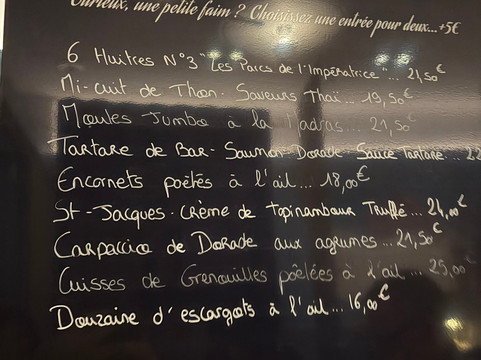 Curieux, une petite faim ? Choisissez une entrée pour deux...+5€
6 Huitres N°3 "Les Parcs de l'Impératrice"... 21,50€
Mi-cuit de Thon. Saveurs Thaï... 19,50€
Moules Jumbo à la Madras... 21,50€
Tartare de Bar-Saumon-Dorade-Sauce Tartare...
Encornets poêlés à l'ail... 18,00€
St-Jacques. Crème de topinambour Truffé... 24,00€
Carpaccio de Dorade aux agrumes...21,50€
Cuisses de Grenouilles poêlées à l'ail... 25,00€
Douzaine d'escargots à l'ail... 16,00€